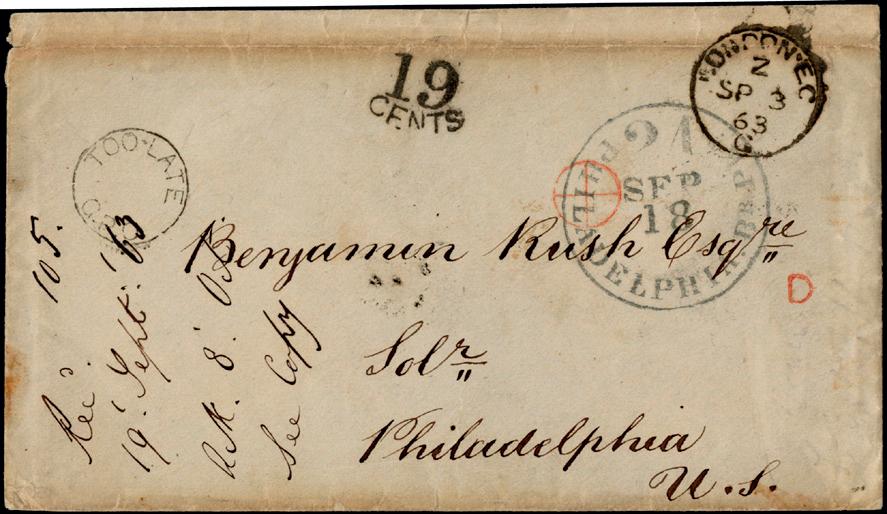 19
CENTS
LONDON·E.C
Z
SP 3
63
TOO-LATE
24
SEP
18
PHILADELPHIA
D
Benjamin Rush Esqre
Solr
Philadelphia
U.S.
105.
Rec.
19 Sept. 63
Ack. 8
See Copy